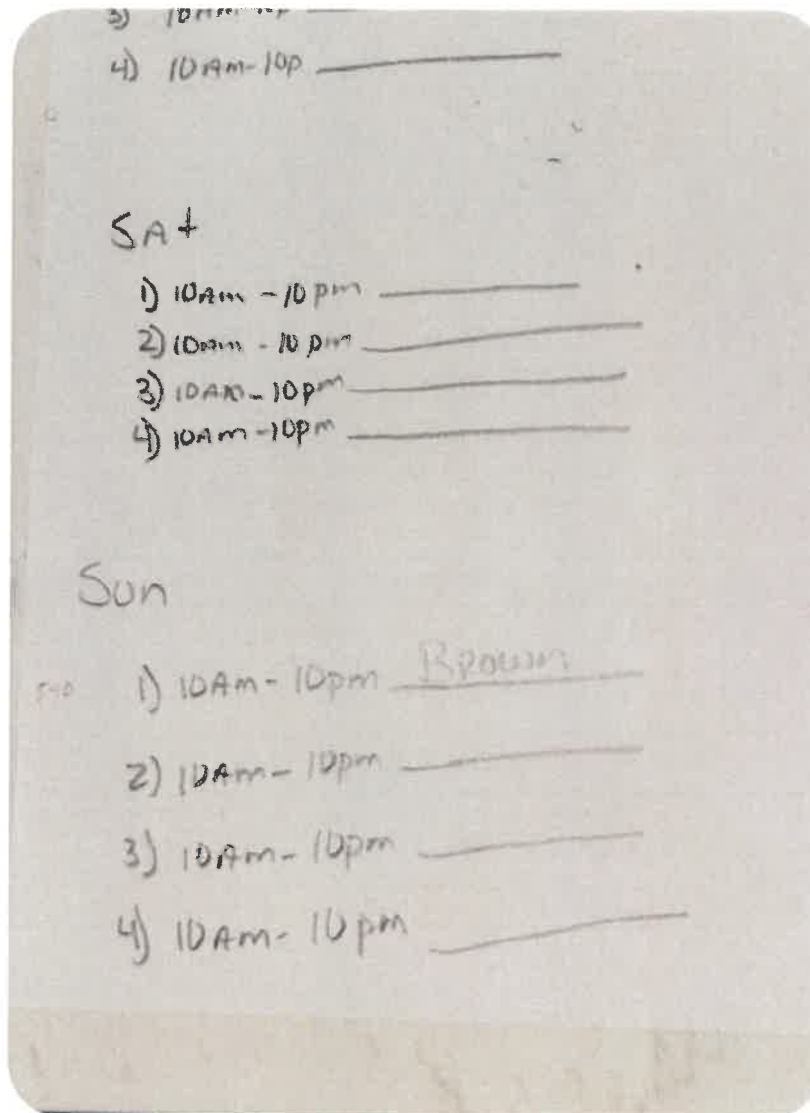 3) 10Am-10p
4) 10Am-10p
SAt
1) 10Am - 10pm
2) 10Am - 10pm
3) 10AM - 10pm
4) 10Am - 10pm
Sun
1) 10Am - 10pm Brown
2) 10Am - 10pm
3) 10Am - 10pm
4) 10Am - 10pm